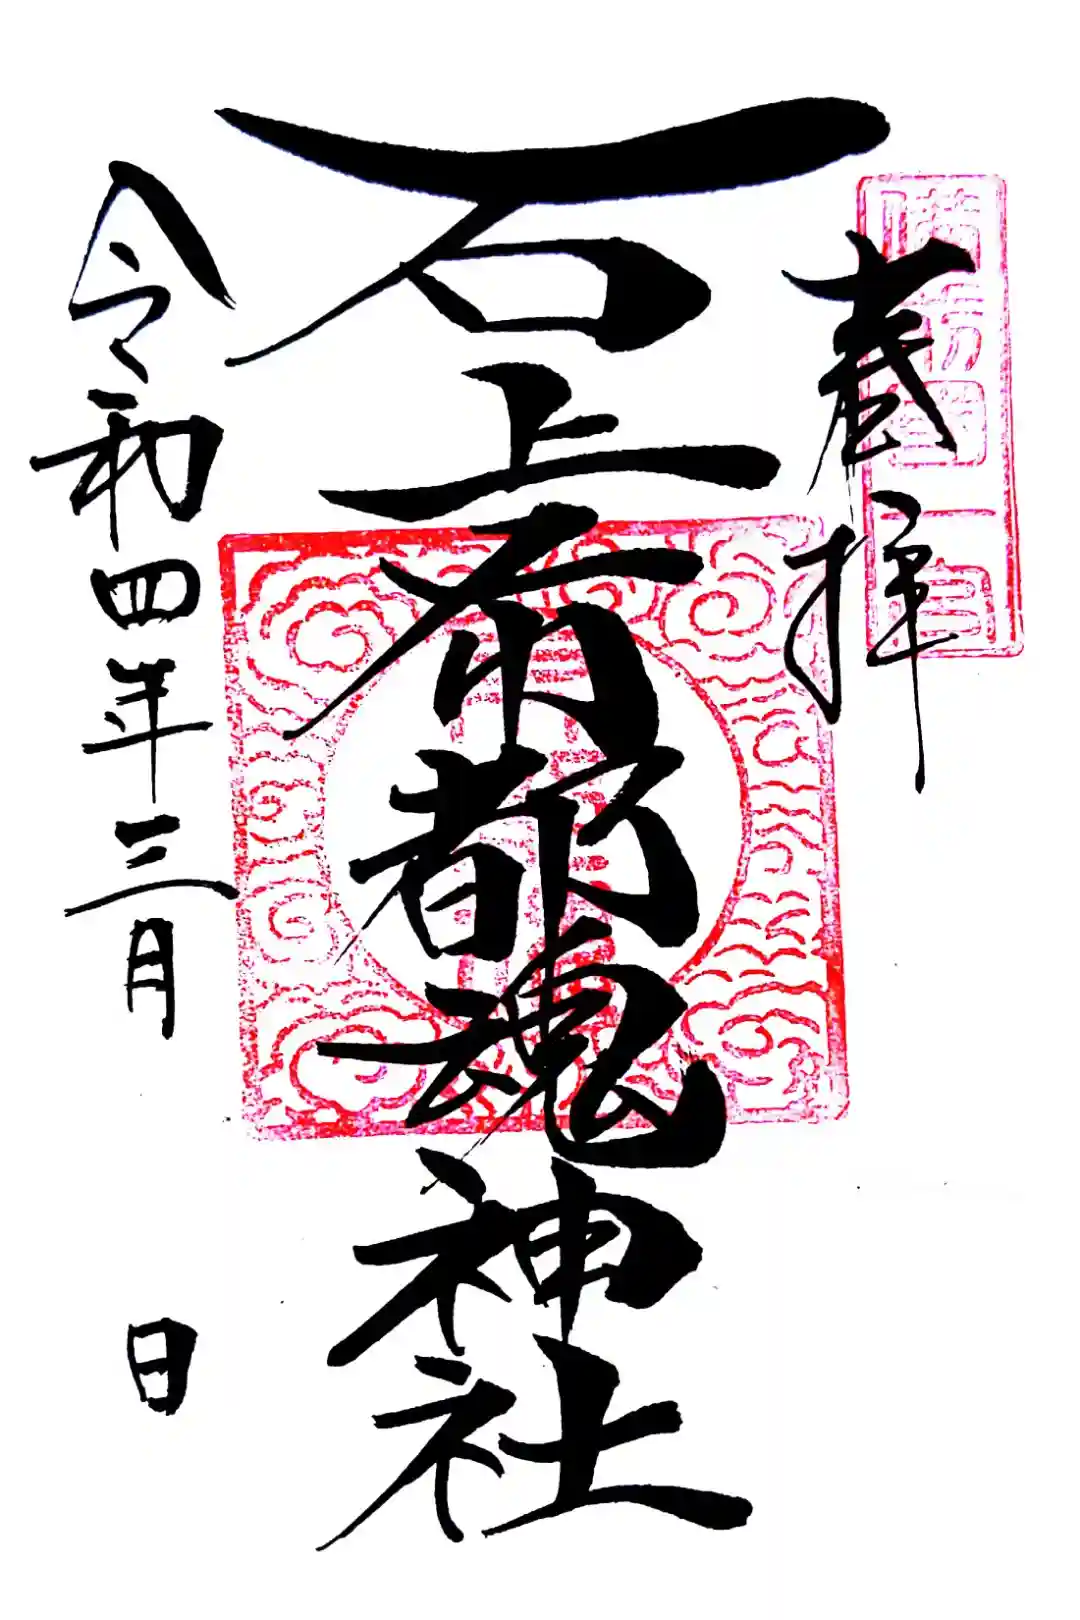 奉拝
備前国一宮
石上布都魂神社
令和四年三月 日